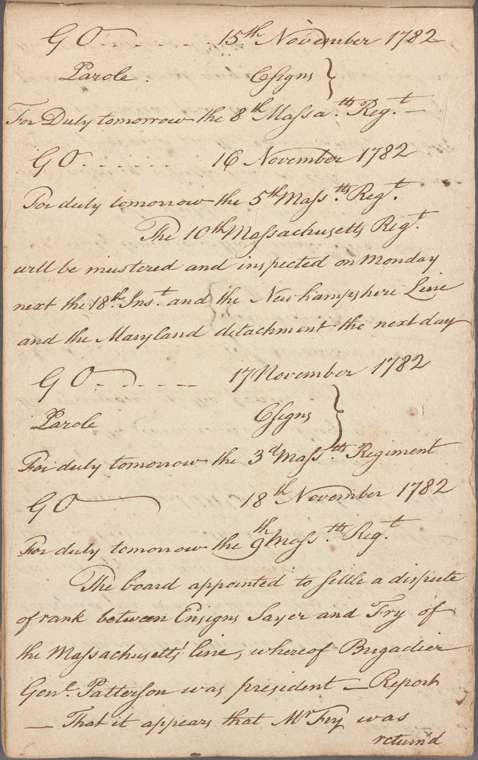 G O 15th November 1782
Parole. Csigns }
For Duty tomorrow the 8th Massa.tts Reg.t
G O. 16 November 1782
For duty tomorrow the 5th Mass.tts Reg.t
The 10th Massachusetts Reg.t
will be mustered and inspected on Monday
next the 18th Ins.t and the New hampshire Line
and the Maryland detachment the next day
G O 17 November 1782
Parole Csigns }
For duty tomorrow the 3d Mass.tts Regiment
G O 18th November 1782
For duty tomorrow the 9th Mass.tts Reg.t
The board appointed to settle a dispute
of rank between Ensigns Sayer and Fry of
the Massachusetts line, whereof Brigadier
Genl. Patterson was president — Report
— That it appears that Mr Fry was
return'd